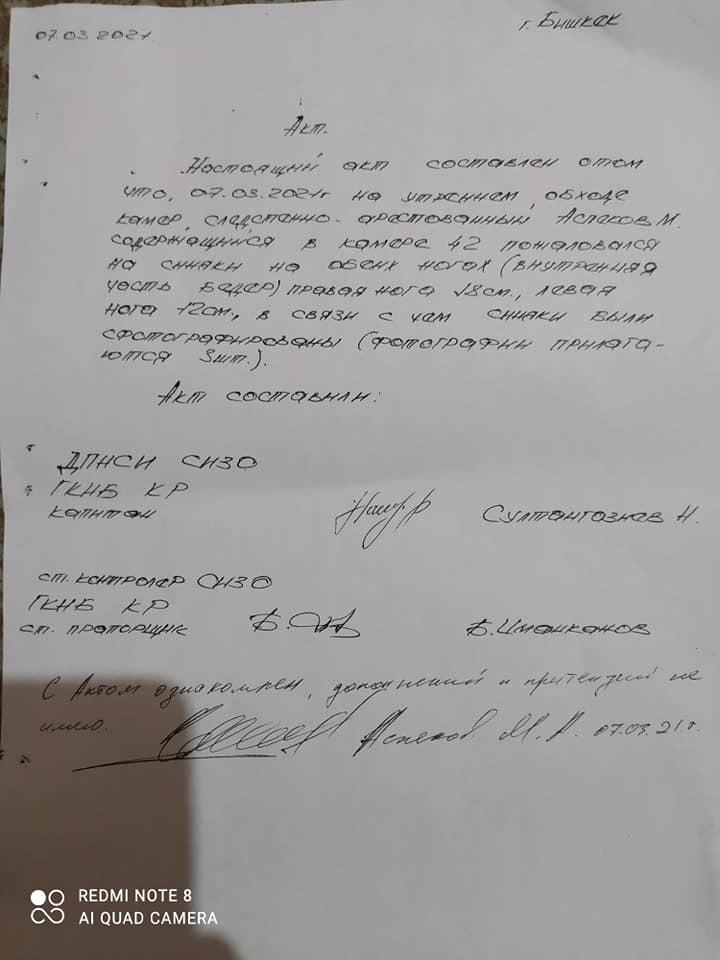 07.03.2021
г. Бишкек
Акт.
Настоящий акт составлен отом
что, 07.03.2021г на утреннем, обходе
камер, следстенно-арестованный Аспеков М.
содержащийся в камере 42 пожаловался
на синяки на обеих ногах (внутренняя
часть бедер) правая нога 18см., левая
нога 12см., в связи с чем синяки были
сфотографированы (фотографии прилага-
ются 3шт.).
Акт составили:
ДПНСИ СИЗО
ГКНБ КР
капитан
Султангазиев Н.
ст. контролер СИЗО
ГКНБ КР
ст. прапорщик
Б.Иманканов
С Актом ознакомлен, дополнений и притензий не
имею.
Аспеков М. А. 07.03.21г.
REDMI NOTE 8
AI QUAD CAMERA